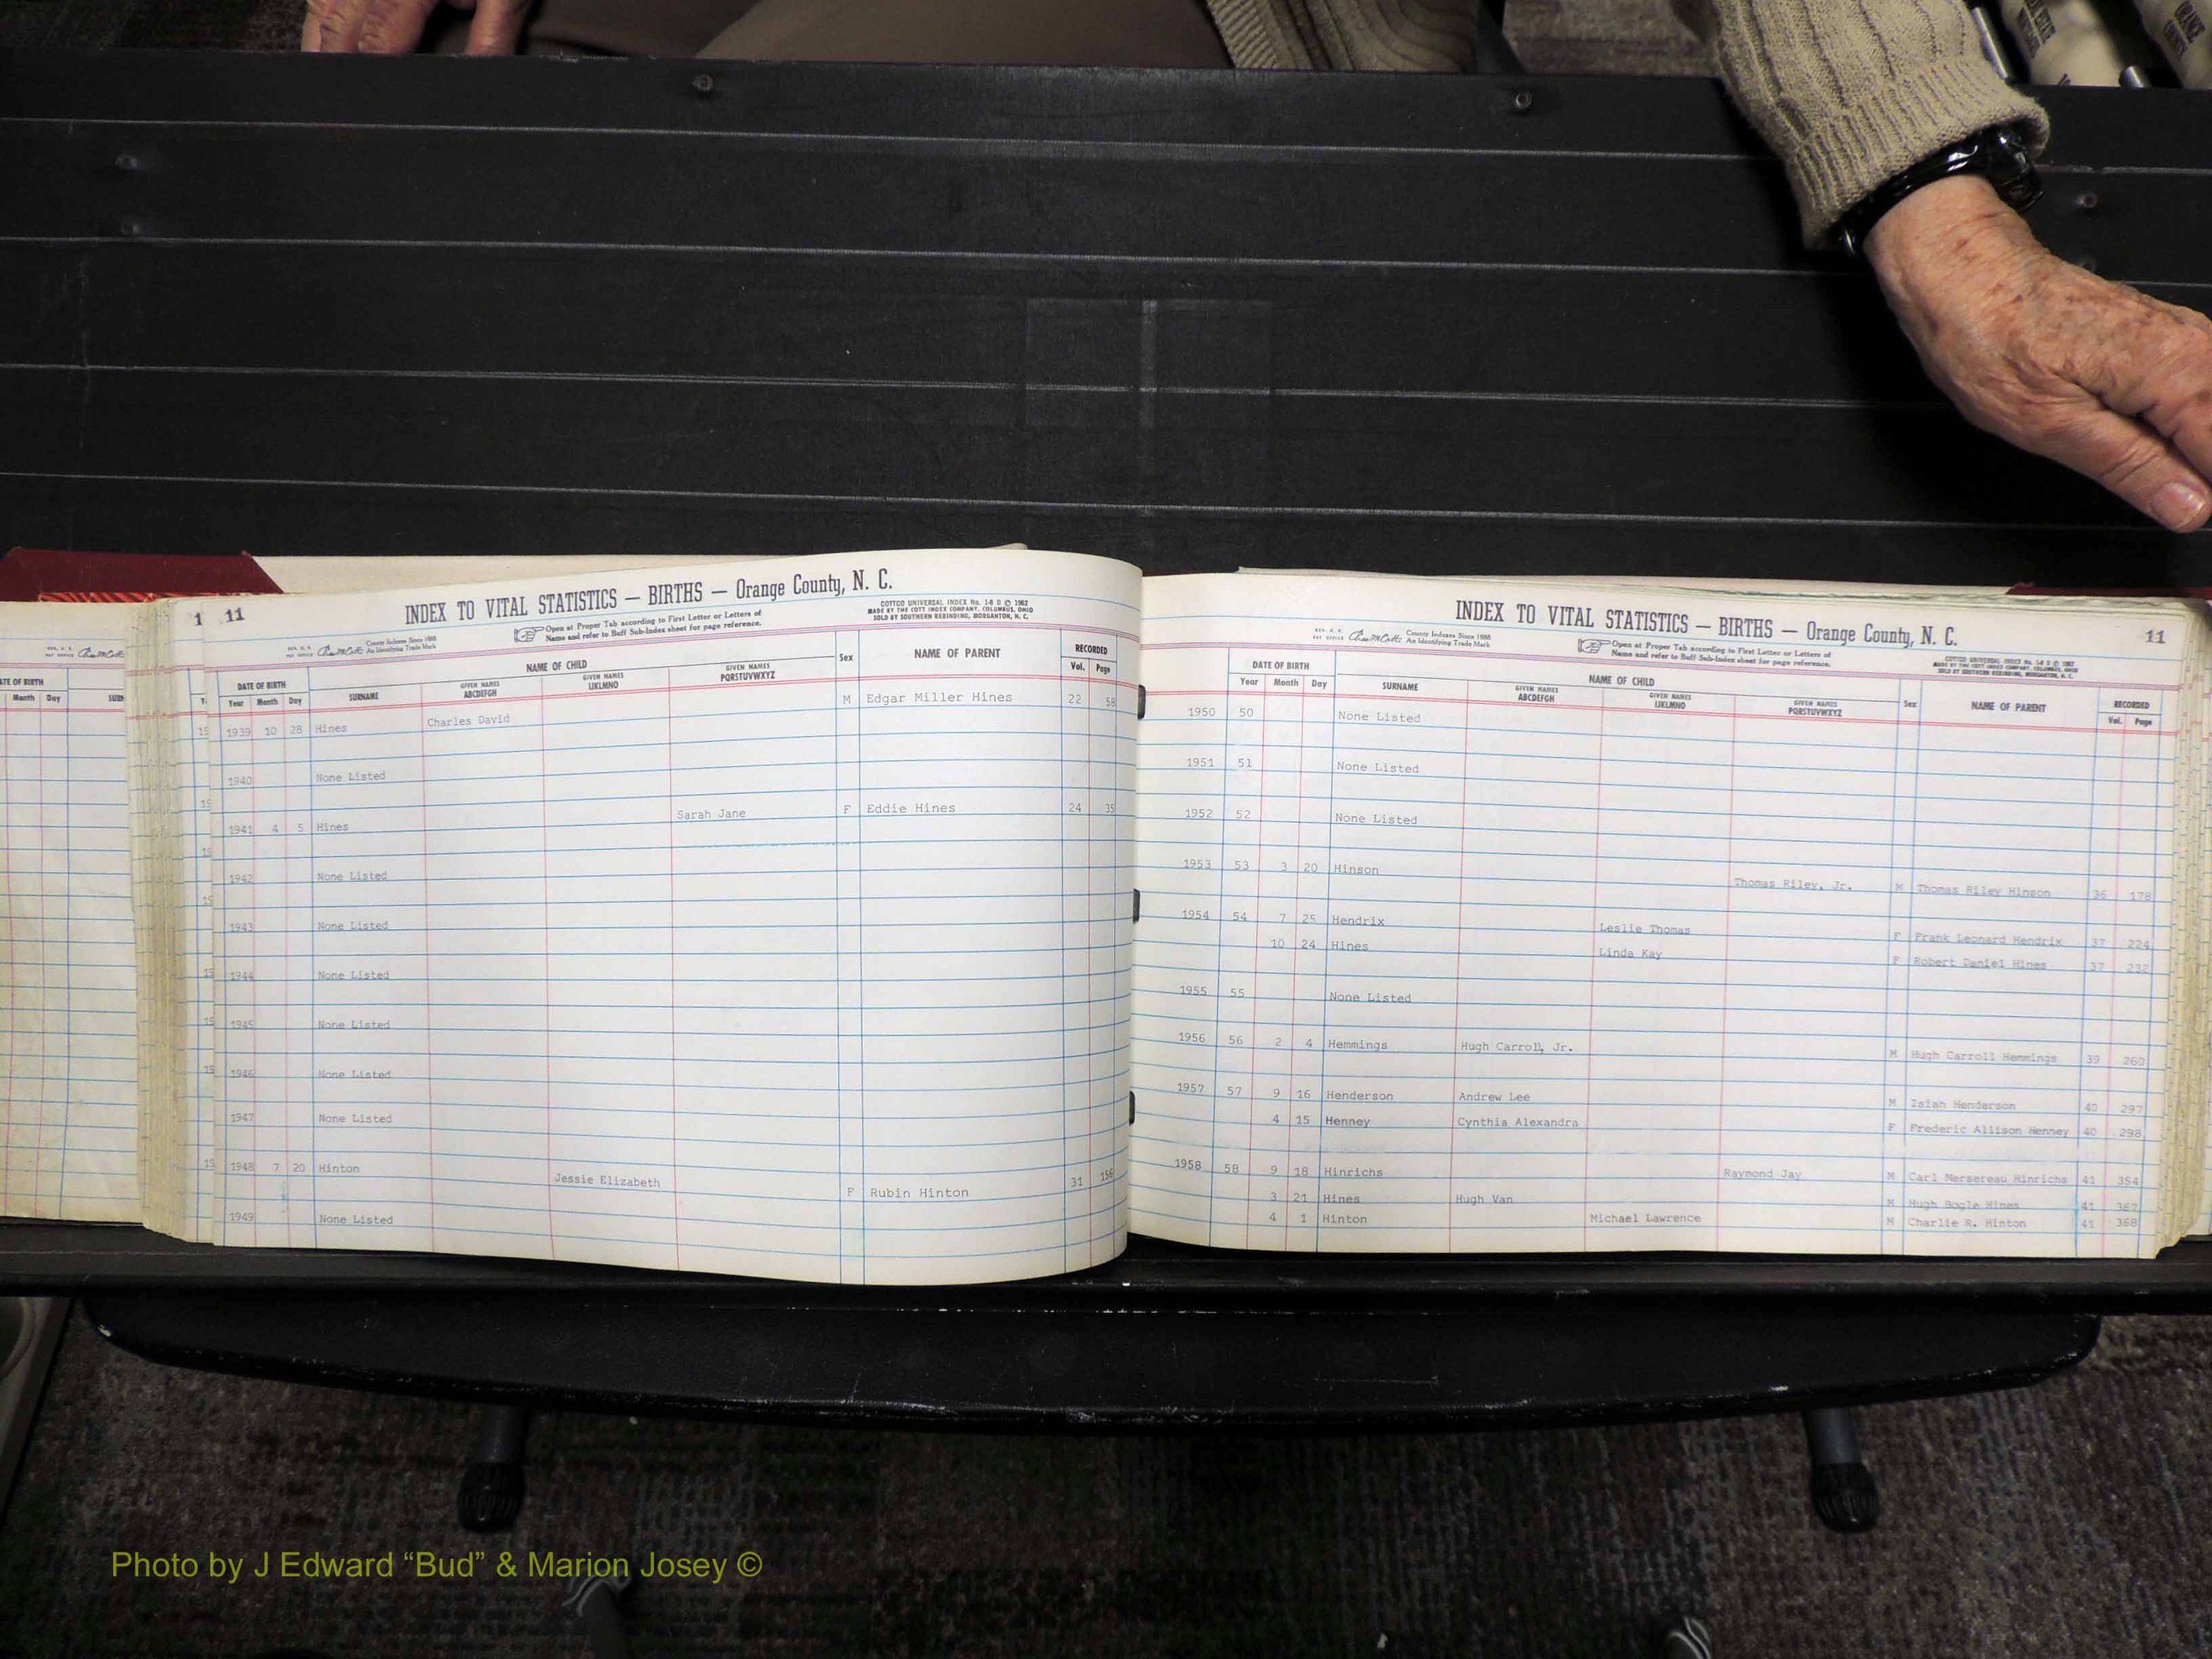 11
INDEX TO VITAL STATISTICS — BIRTHS — Orange County, N. C.
COTTCO UNIVERSAL INDEX No. 1-B D © 1962
MADE BY THE COTT INDEX COMPANY, COLUMBUS, OHIO
SOLD BY SOUTHERN REBINDING, MORGANTON, N. C.
County Indexes Since 1888
An Identifying Trade Mark
Open at Proper Tab according to First Letter or Letters of
Name and refer to Buff Sub-Index sheet for page reference.
DATE OF BIRTH NAME OF CHILD Sex NAME OF PARENT RECORDED
Year Month Day SURNAME GIVEN NAMES ABCDEFGH GIVEN NAMES IJKLMNO GIVEN NAMES PQRSTUVWXYZ Vol. Page
1939 10 28 Hines Charles David M Edgar Miller Hines 22 58
1940 None Listed
1941 4 5 Hines Sarah Jane F Eddie Hines 24 35
1942 None Listed
1943 None Listed
1944 None Listed
1945 None Listed
1946 None Listed
1947 None Listed
1948 7 20 Hinton Jessie Elizabeth F Rubin Hinton 31 156
1949 None Listed
INDEX TO VITAL STATISTICS — BIRTHS — Orange County, N. C.
11
County Indexes Since 1888
An Identifying Trade Mark
Open at Proper Tab according to First Letter or Letters of
Name and refer to Buff Sub-Index sheet for page reference.
COTTCO UNIVERSAL INDEX No. 1-B D © 1962
MADE BY THE COTT INDEX COMPANY, COLUMBUS, OHIO
SOLD BY SOUTHERN REBINDING, MORGANTON, N. C.
DATE OF BIRTH NAME OF CHILD Sex NAME OF PARENT RECORDED
Year Month Day SURNAME GIVEN NAMES ABCDEFGH GIVEN NAMES IJKLMNO GIVEN NAMES PQRSTUVWXYZ Vol. Page
1950 50 None Listed
1951 51 None Listed
1952 52 None Listed
1953 53 3 20 Hinson Thomas Riley, Jr. M Thomas Riley Hinson 36 178
1954 54 7 25 Hendrix Leslie Thomas F Frank Leonard Hendrix 37 224
10 24 Hines Linda Kay F Robert Daniel Hines 37 232
1955 55 None Listed
1956 56 2 4 Hemmings Hugh Carroll, Jr. M Hugh Carroll Hemmings 39 260
1957 57 9 16 Henderson Andrew Lee M Isiah Henderson 40 297
4 15 Henney Cynthia Alexandra F Frederic Allison Henney 40 298
1958 58 9 18 Hinrichs Raymond Jay M Carl Mersereau Hinrichs 41 354
3 21 Hines Hugh Van M Hugh Bogle Hines 41 367
4 1 Hinton Michael Lawrence M Charlie R. Hinton 41 368
Photo by J Edward “Bud” & Marion Josey ©